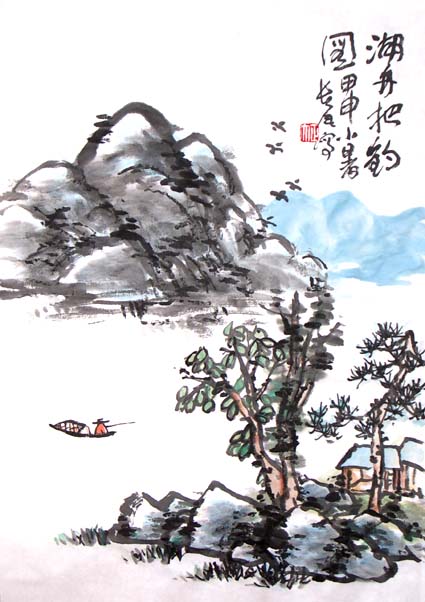 湖舟把钓
图甲申小暑
长石写